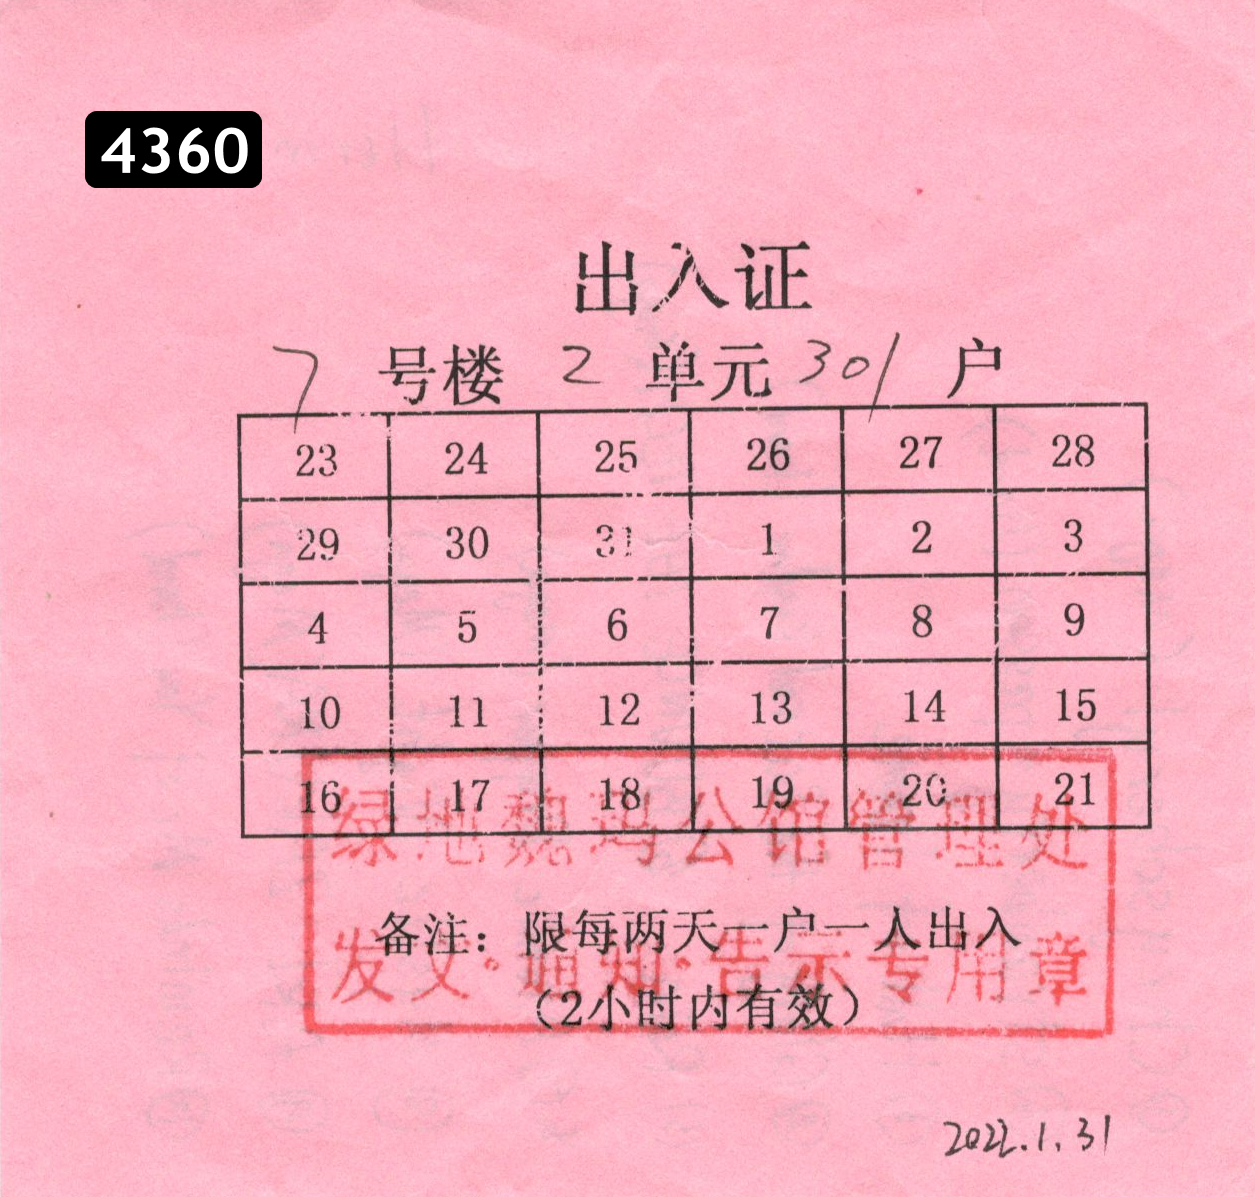 4360
出入证
7 号楼 2 单元 301 户
23 24 25 26 27 28
29 30 31 1 2 3
4 5 6 7 8 9
10 11 12 13 14 15
16 17 18 19 20 21
绿地魏玛公馆管理处
备注：限每两天一户一人出入
发文·通知·告示专用章
（2小时内有效）
2022.1.31